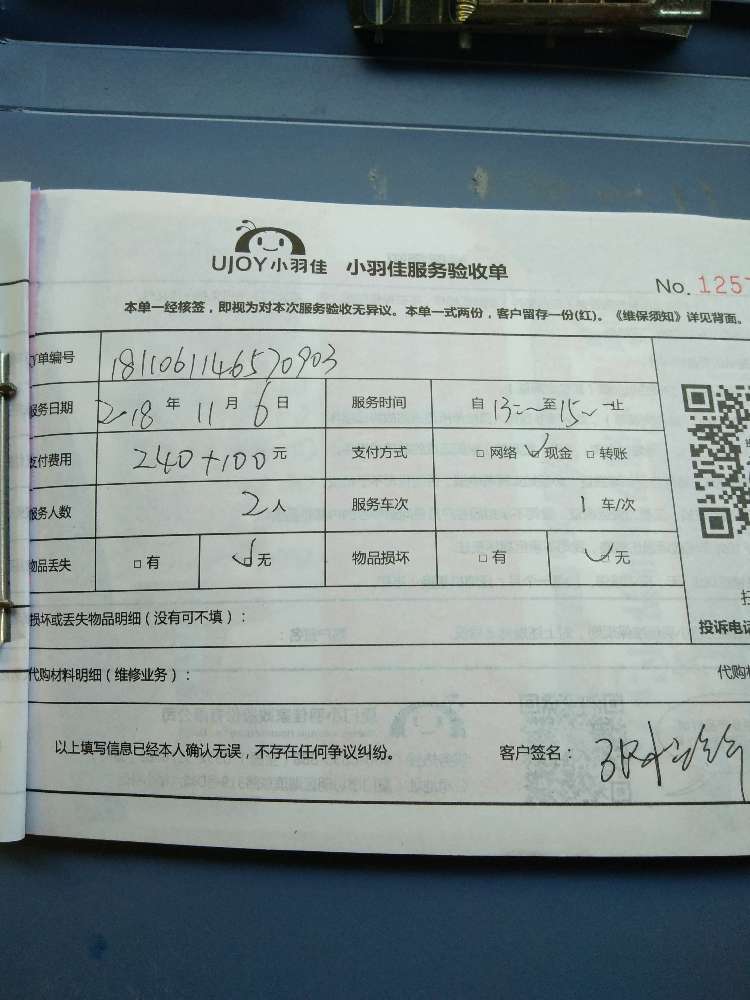 UJOY小羽佳 小羽佳服务验收单
No. 1257
本单一经核签，即视为对本次服务验收无异议。本单一式两份，客户留存一份(红)。《维保须知》详见背面。
订单编号 1811061146570903
服务日期 2018年11月6日 服务时间 自13:~至15~止
支付费用 240+100元 支付方式 □网络 ☑现金 □转账
服务人数 2人 服务车次 1车/次
物品丢失 □有 ☑无 物品损坏 □有 ☑无
损坏或丢失物品明细（没有可不填）：
投诉电话
代购材料明细（维修业务）：
代购
以上填写信息已经本人确认无误，不存在任何争议纠纷。 客户签名：